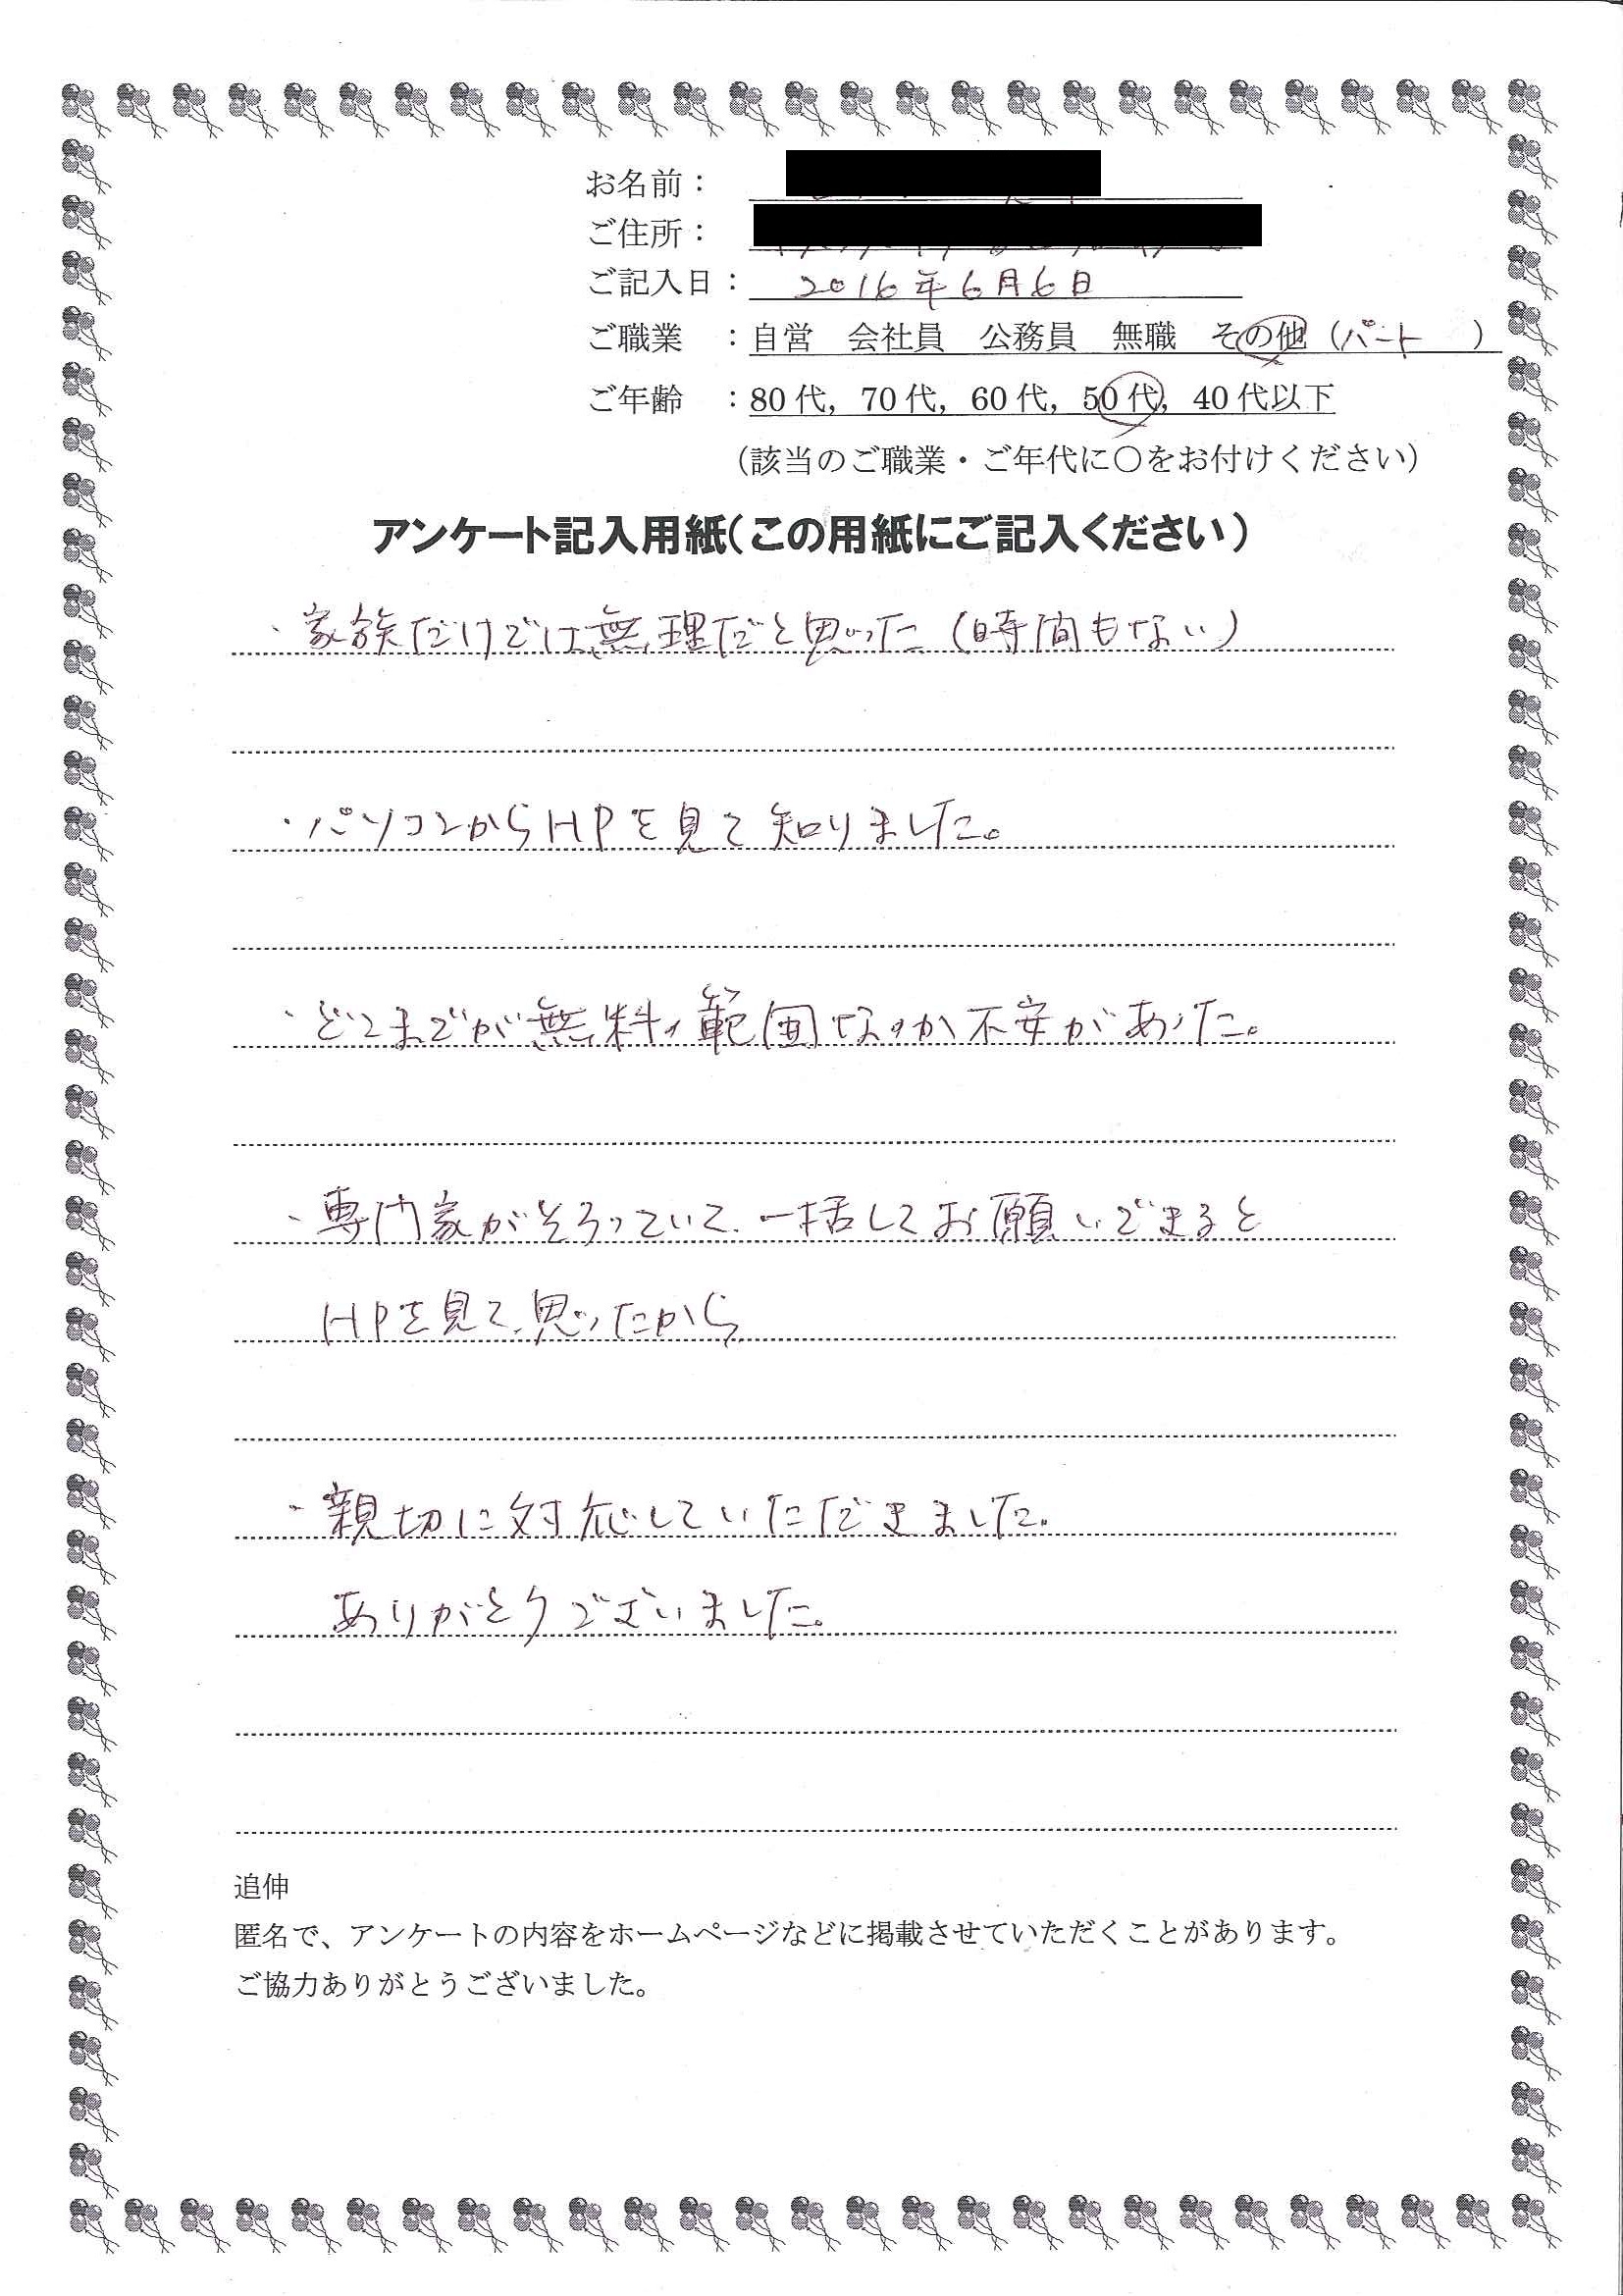 お名前：
ご住所：
ご記入日： 2016年6月6日
ご職業 ：自営 会社員 公務員 無職 その他（パート ）
ご年齢 ：80代，70代，60代，50代，40代以下
（該当のご職業・ご年代に〇をお付けください）
アンケート記入用紙（この用紙にご記入ください）
・家族だけでは無理だと思った（時間もない）
・パソコンからHPを見て知りました。
・どこまでが無料の範囲なのか不安があった。
・専門家がそろっていて、一括してお願いできると
HPを見て、思ったから
・親切に対応していただきました。
ありがとうございました。
追伸
匿名で、アンケートの内容をホームページなどに掲載させていただくことがあります。
ご協力ありがとうございました。